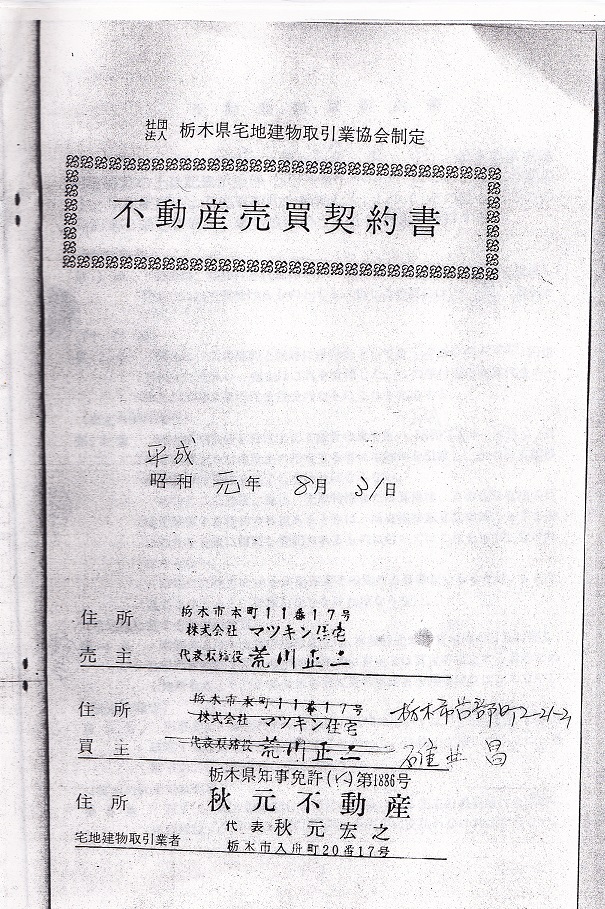 社団法人 栃木県宅地建物取引業協会制定
不動産売買契約書
平成
昭和 元年 8月 31日
住所 栃木市本町11番17号
株式会社 マツキン住宅
売主 代表取締役 荒川正二
住所 栃木市本町11番17号 栃木市 町2-21-2
株式会社 マツキン住宅
買主 代表取締役 荒川正二 碓井 昌
栃木県知事免許( )第1886号
住所 秋元不動産
代表 秋元宏之
宅地建物取引業者 栃木市入舟町20番17号